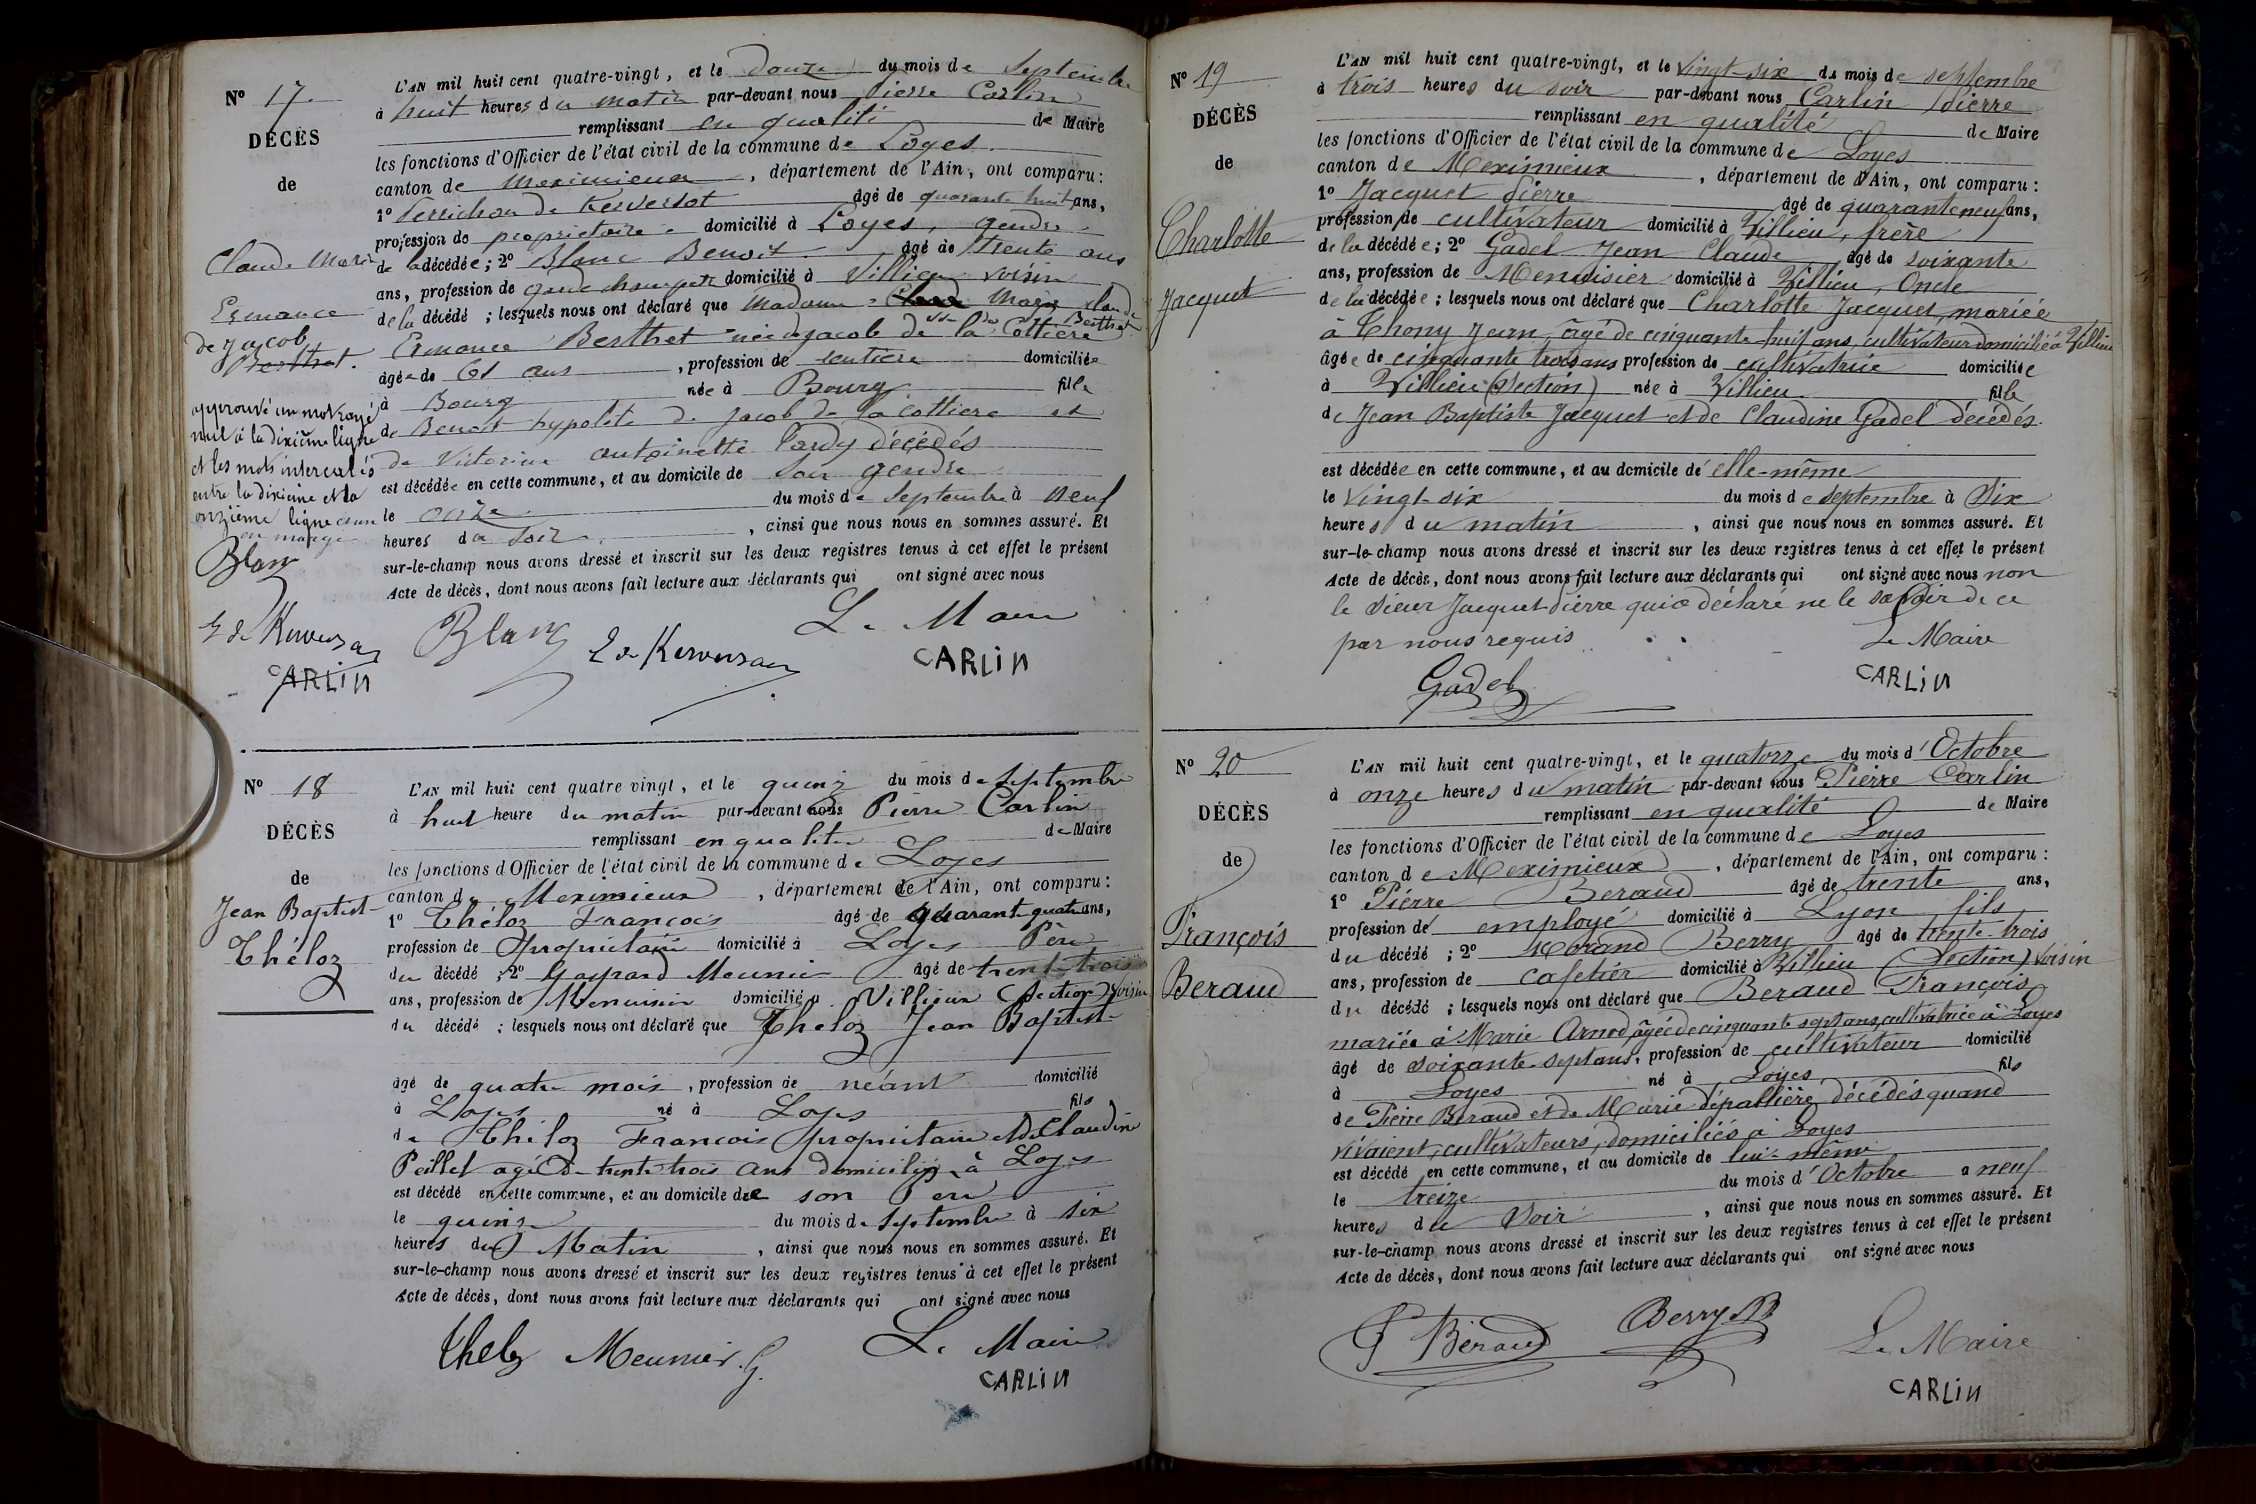 N° 17
DÉCÈS
de
Claude Marie
Ermance
de Jacob
Berthet.
approuvé un mot rayé
nul à la dixième ligne
et les mots intercalés
entre la dixième et la
onzième ligne
en marge
Blanc
E de Kerversau
CARLIN
L'AN mil huit cent quatre-vingt, et le douze du mois de Septembre
à huit heures du matin par-devant nous Pierre Carlin
remplissant en qualité de Maire
les fonctions d'Officier de l'état civil de la commune de Loyes
canton de Meximieux, département de l'Ain, ont comparu :
1° Perrichon de Kerversot âgé de quarante huit ans,
profession de propriétaire domicilié à Loyes, gendre
de la décédée ; 2° Blanc Benoit âgé de trente ans
ans, profession de garde champêtre domicilié à Villieu voisin
de la décédé ; lesquels nous ont déclaré que Madame Marie Claude
Berthet
Ermance Berthet née de Jacob de la Cottière
âgée de 61 ans, profession de rentière domiciliée
à Bourg née à Bourg fille
de Benoit hypolite de Jacob de la Cottière et
de Victorine antoinette Tardy décédés
est décédée en cette commune, et au domicile de son gendre
le onze du mois de Septembre à neuf
heures du soir, ainsi que nous nous en sommes assuré. Et
sur-le-champ nous avons dressé et inscrit sur les deux registres tenus à cet effet le présent
Acte de décès, dont nous avons fait lecture aux déclarants qui ont signé avec nous
Le Maire
Blanc E de Kerversau CARLIN
N° 18
DÉCÈS
de
Jean Baptist
Théloz
L'AN mil huit cent quatre vingt, et le quinz du mois de Septembre
à huit heure du matin par-devant nous Pierre Carlin
remplissant en qualité de Maire
les fonctions d'Officier de l'état civil de la commune de Loyes
canton de Meximieux, département de l'Ain, ont comparu :
1° Théloz François âgé de quarant quatr ans,
profession de Propriétaire domicilié à Loyes Père
du décédé ; 2° Gaspard Meunier âgé de trent trois
ans, profession de Menuisier domicilié a Villieux (Section) voisin
du décédé ; lesquels nous ont déclaré que Theloz Jean Baptist
âgé de quatre mois, profession de néant domicilié
à Loyes né à Loyes fils
de Théloz François propriétaire et de Claudine
Peillet agée de trente trois ans domiciliés à Loyes
est décédé en cette commune, et au domicile de son Père
le quinze du mois de Septembre à six
heures du Matin, ainsi que nous nous en sommes assuré. Et
sur-le-champ nous avons dressé et inscrit sur les deux registres tenus à cet effet le présent
Acte de décès, dont nous avons fait lecture aux déclarants qui ont signé avec nous
Theloz Meunier. G. Le Maire
CARLIN
N° 19
DÉCÈS
de
Charlotte
Jacquet
L'AN mil huit cent quatre-vingt, et le vingt-six du mois de septembre
à trois heures du soir par-devant nous Carlin Pierre
remplissant en qualité de Maire
les fonctions d'Officier de l'état civil de la commune de Loyes
canton de Meximieux, département de l'Ain, ont comparu :
1° Jacquet Pierre âgé de quarante neuf ans,
profession de cultivateur domicilié à Villieu, frère
de la décédée ; 2° Gadel Jean Claude âgé de soixante
ans, profession de Menuisier domicilié à Villieu, Oncle
de la décédée ; lesquels nous ont déclaré que Charlotte Jacquet, mariée
à Thony Jean, âgé de cinquante-huit ans, cultivateur domicilié à Villieu
âgée de cinquante trois ans profession de cultivatrice domiciliée
à Villieu (Section) née à Villieu fille
de Jean Baptiste Jacquet et de Claudine Gadel décédés.
est décédée en cette commune, et au domicile de elle-même
le vingt-six du mois de septembre à Six
heures du matin, ainsi que nous nous en sommes assuré. Et
sur-le-champ nous avons dressé et inscrit sur les deux registres tenus à cet effet le présent
Acte de décès, dont nous avons fait lecture aux déclarants qui ont signé avec nous non
le sieur Jacquet Pierre qui a déclaré ne le savoir de ce
par nous requis Le Maire
Gadel CARLIN
N° 20
DÉCÈS
de
François
Beraud
L'AN mil huit cent quatre-vingt, et le quatorze du mois d'Octobre
à onze heures du matin par-devant nous Pierre Carlin
remplissant en qualité de Maire
les fonctions d'Officier de l'état civil de la commune de Loyes
canton de Meximieux, département de l'Ain, ont comparu :
1° Pierre Beraud âgé de trente ans,
profession de employé domicilié à Lyon fils
du décédé ; 2° Morand Berry âgé de trente-trois
ans, profession de cafetier domicilié à Villieu (Section) voisin
du décédé ; lesquels nous ont déclaré que Beraud François
mariée à Marie Arnod, âgée de cinquante sept ans, cultivatrice à Loyes
âgé de soixante-sept ans, profession de cultivateur domicilié
à Loyes né à Loyes fils
de Pierre Beraud et de Marie Depallière, décédés quand
vivaient, cultivateurs, domiciliés à Loyes
est décédé en cette commune, et au domicile de lui-même
le treize du mois d'Octobre a neuf
heures du soir, ainsi que nous nous en sommes assuré. Et
sur-le-champ nous avons dressé et inscrit sur les deux registres tenus à cet effet le présent
Acte de décès, dont nous avons fait lecture aux déclarants qui ont signé avec nous
P Béraud Berry M Le Maire
CARLIN